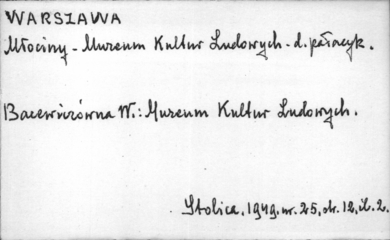 WARSZAWA
Młociny - Muzeum Kultur Ludowych - d. pałacyk.
Bacewiczówna W.: Muzeum Kultur Ludowych.
Stolica, 1949, nr. 25, str. 12, il. 2.